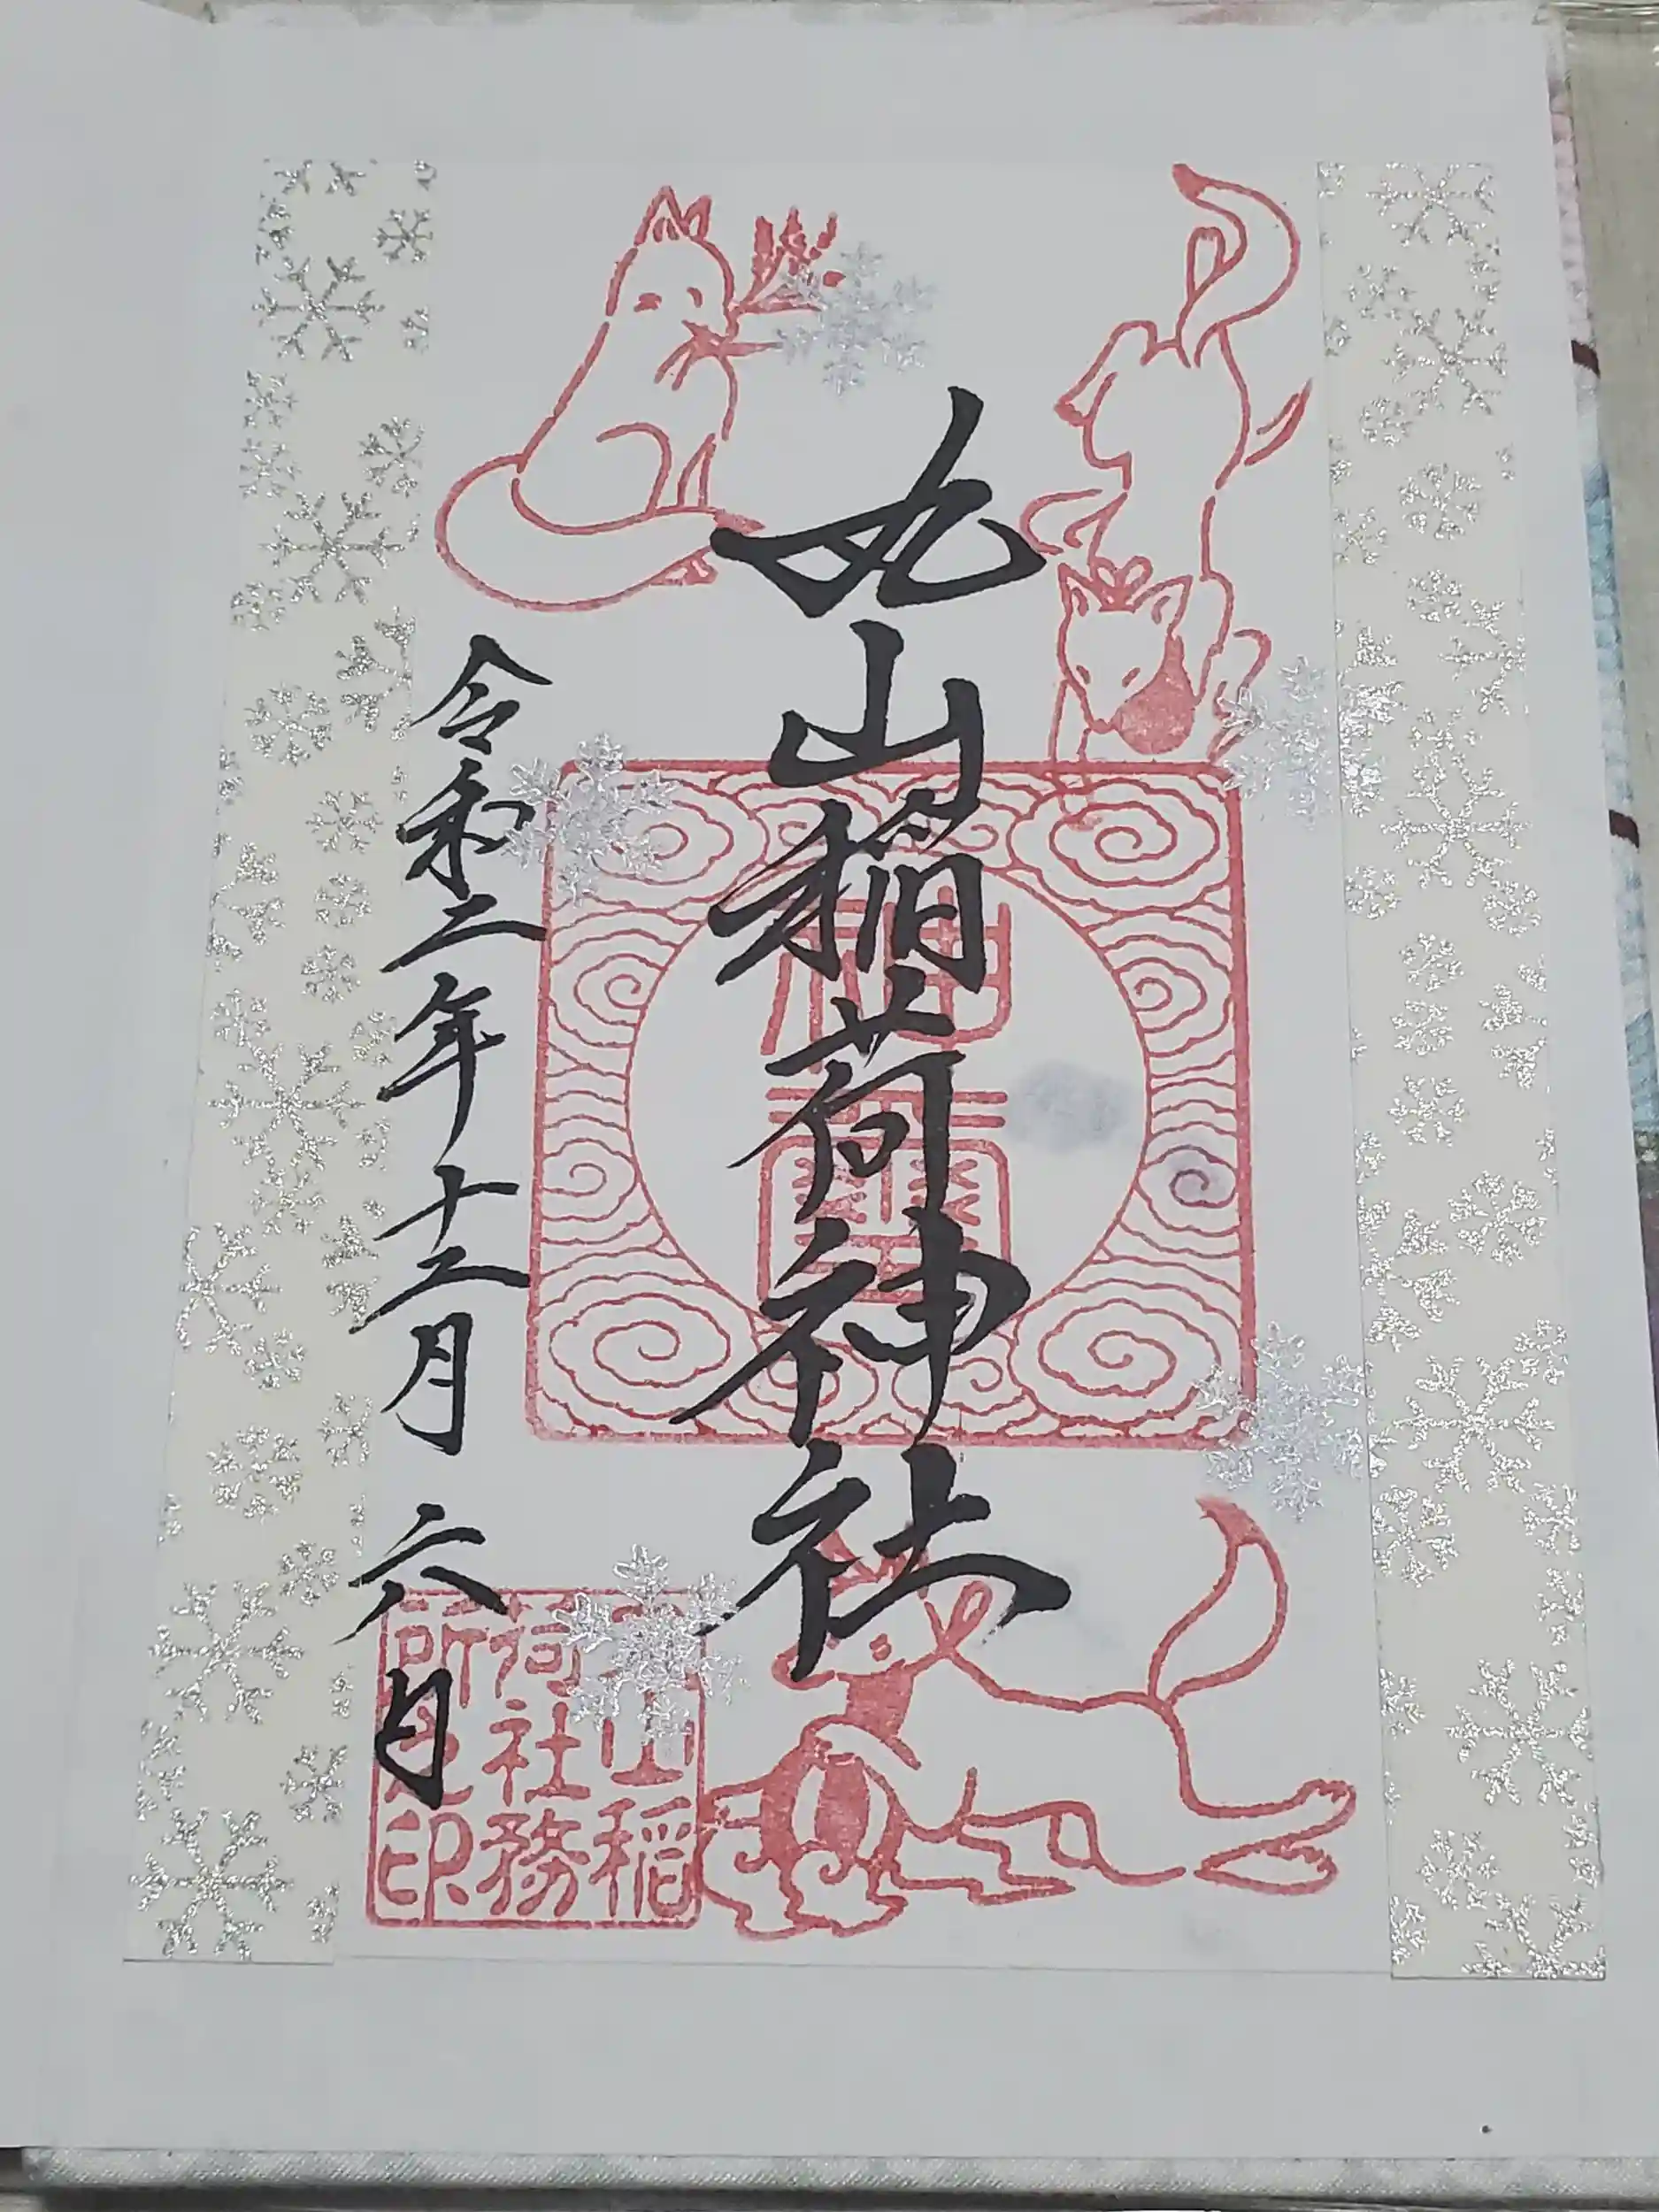 丸山稲荷神社
令和二年十二月六日
神璽
山稲
荷社務
所之印